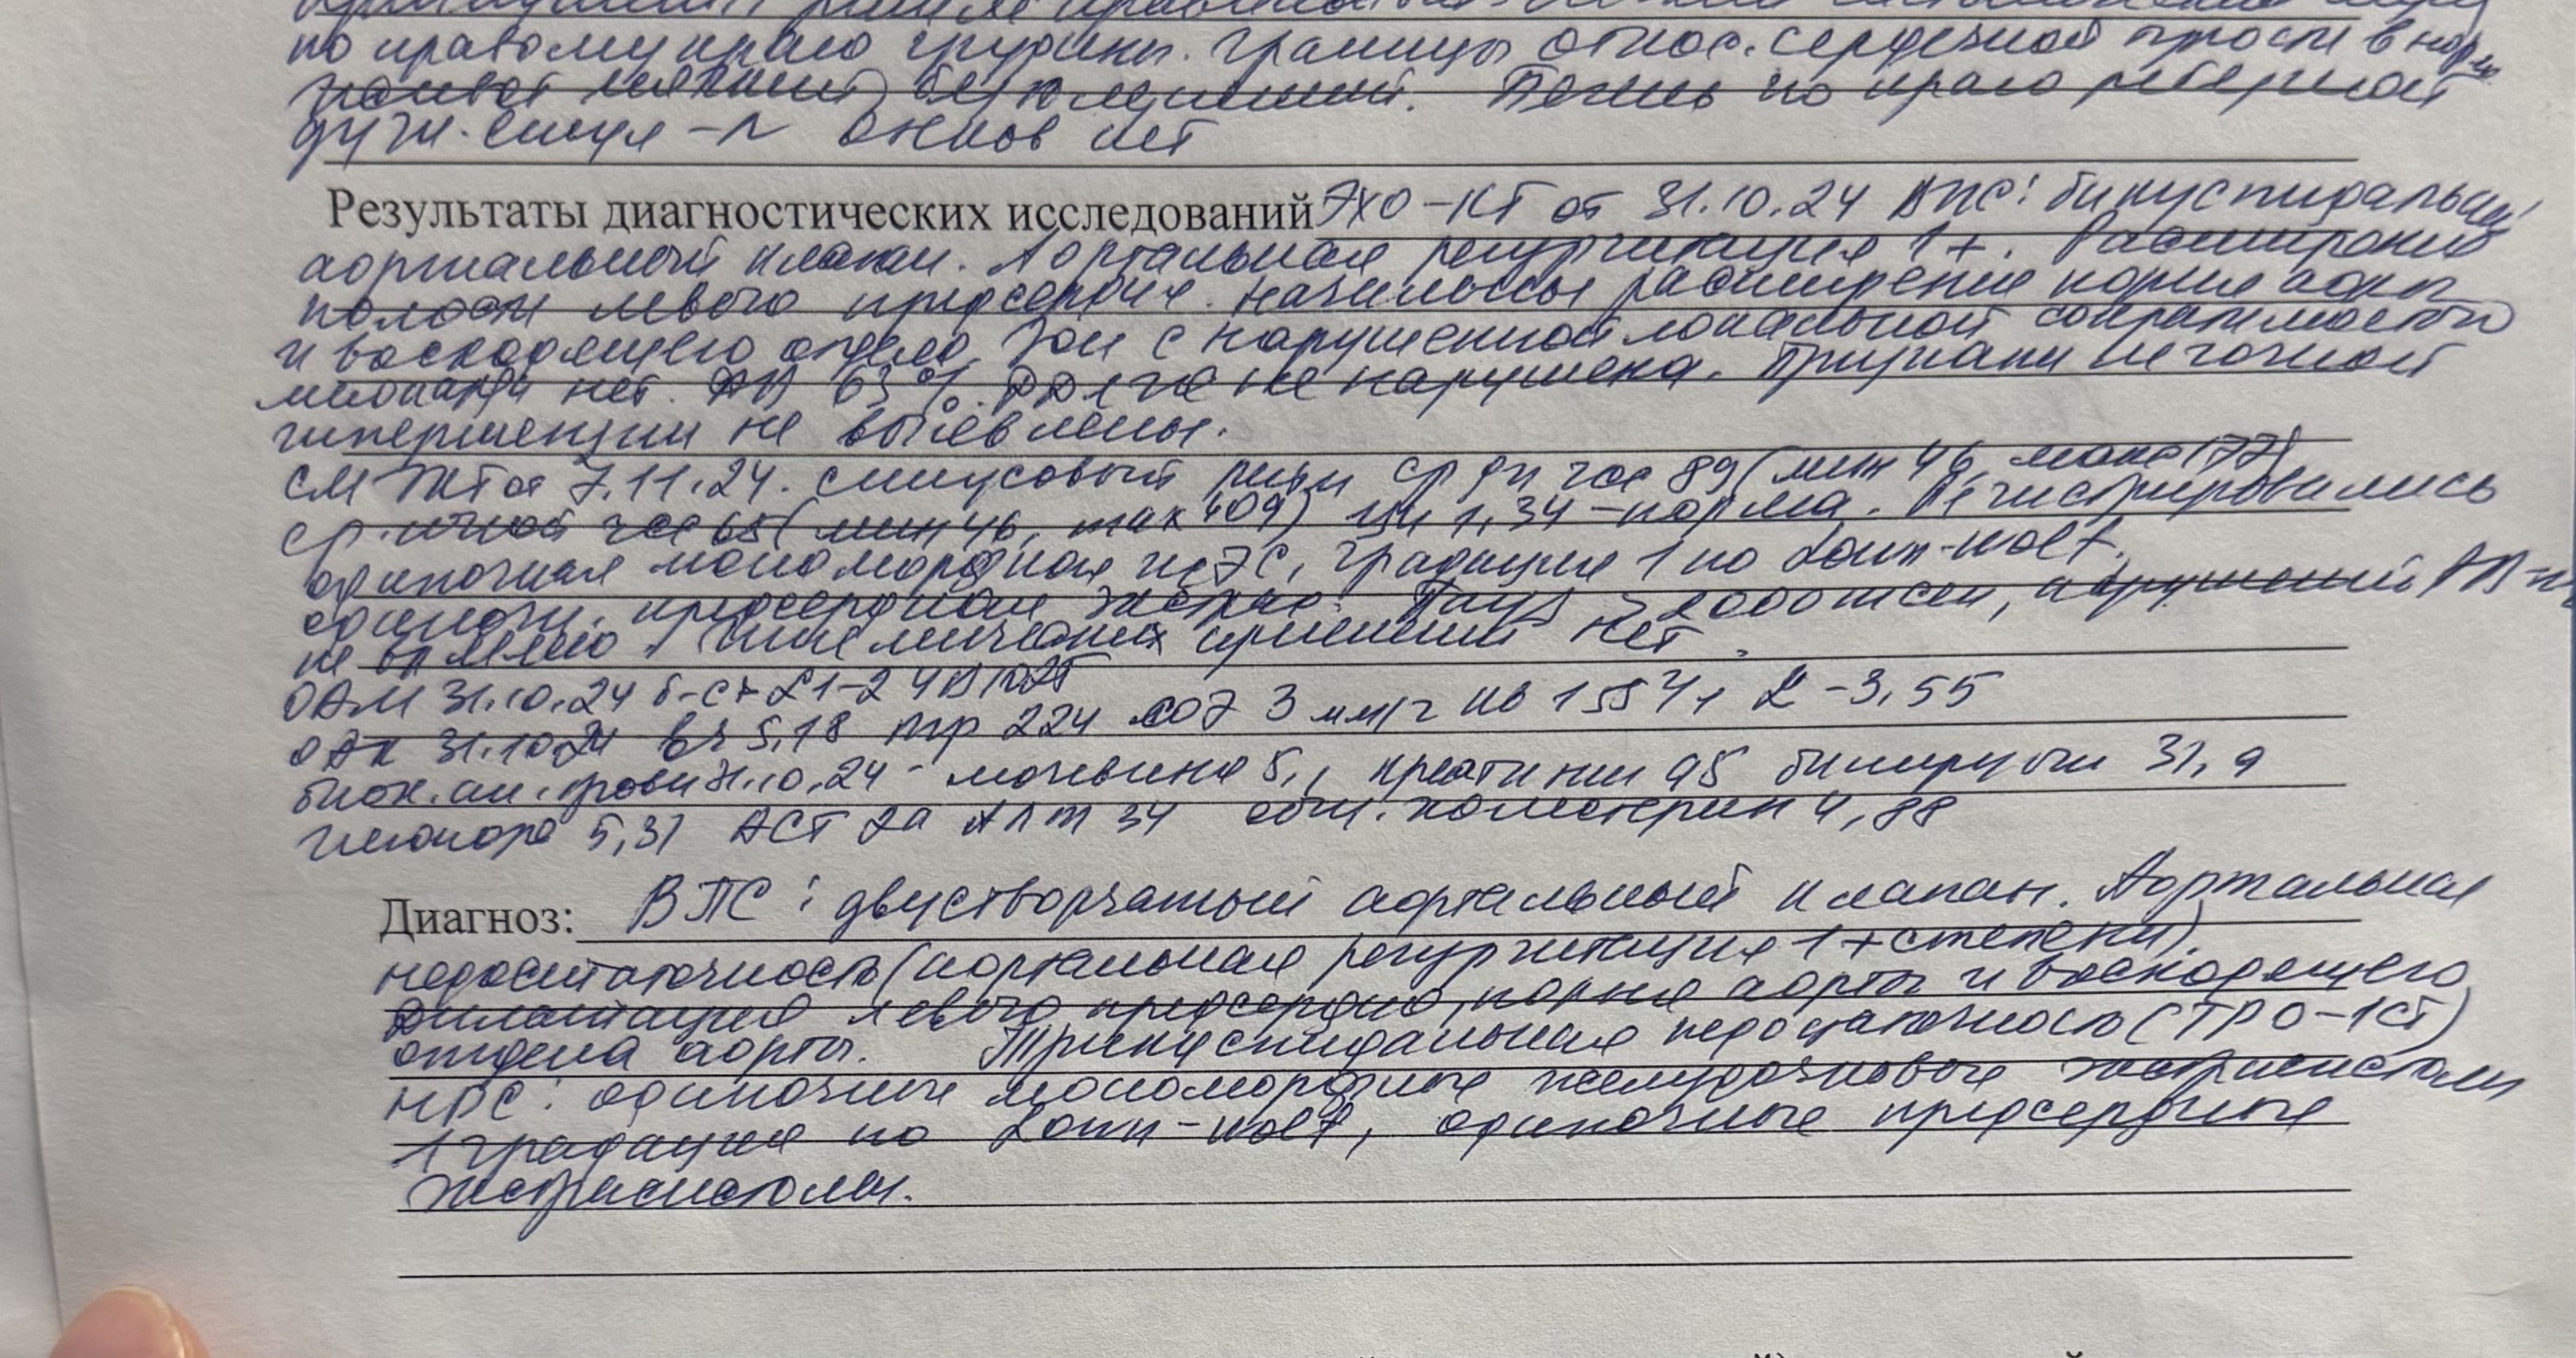 по правому краю грудины. Границы относ. сердечной тупости в норме
живот мягкий, безболезненный. Печень по краю реберной
дуги. стул - N отеков нет
Результаты диагностических исследований ЭХО-КГ от 31.10.24 ВПС: бикуспидальный
аортальный клапан. Аортальная регургитация 1+. Расширение
полости левого предсердия. Начальное расширение корня аорты
и восходящего отдела. Зон с нарушенной локальной сократимостью
миокарда нет. ФВ 63%. не нарушена. Признаки легочной
гипертензии не выявлены.
СМЭКГ от 7.11.24. синусовый ритм ср дн чсс 89 (мин 46, макс 177)
ср. ночной чсс 65 (мин 46, max 109) ЦИ 1,34 - норма. Регистрировались
одиночная мономорфная ЖЭС, градация 1 по Lown-Wolf,
одиноч. предсердная экстрас. Пауз > 2000 мсек, нарушений АВ-
не выявлено. Ишемических изменений нет.
ОАМ 31.10.24
ОАК 31.10.24 Er 5,18 тр 224 СОЭ 3 мм/г Нв 155 L - 3,55
биох. ан. крови 31.10.24 - мочевина 5,1, креатинин 95 билирубин 31,9
глюкоза 5,31 АСТ АЛТ 34 общ. холестерин 4,88
Диагноз: ВПС: двустворчатый аортальный клапан. Аортальная
недостаточность (аортальная регургитация 1+ степени).
Дилатация левого предсердия, корня аорты и восходящего
отдела аорты. Трикуспидальная недостаточность (ТР 0-1 ст)
НРС: одиночные мономорфные желудочковые экстрасистолы
1 градация по Lown-Wolf, одиночные предсердные
экстрасистолы.